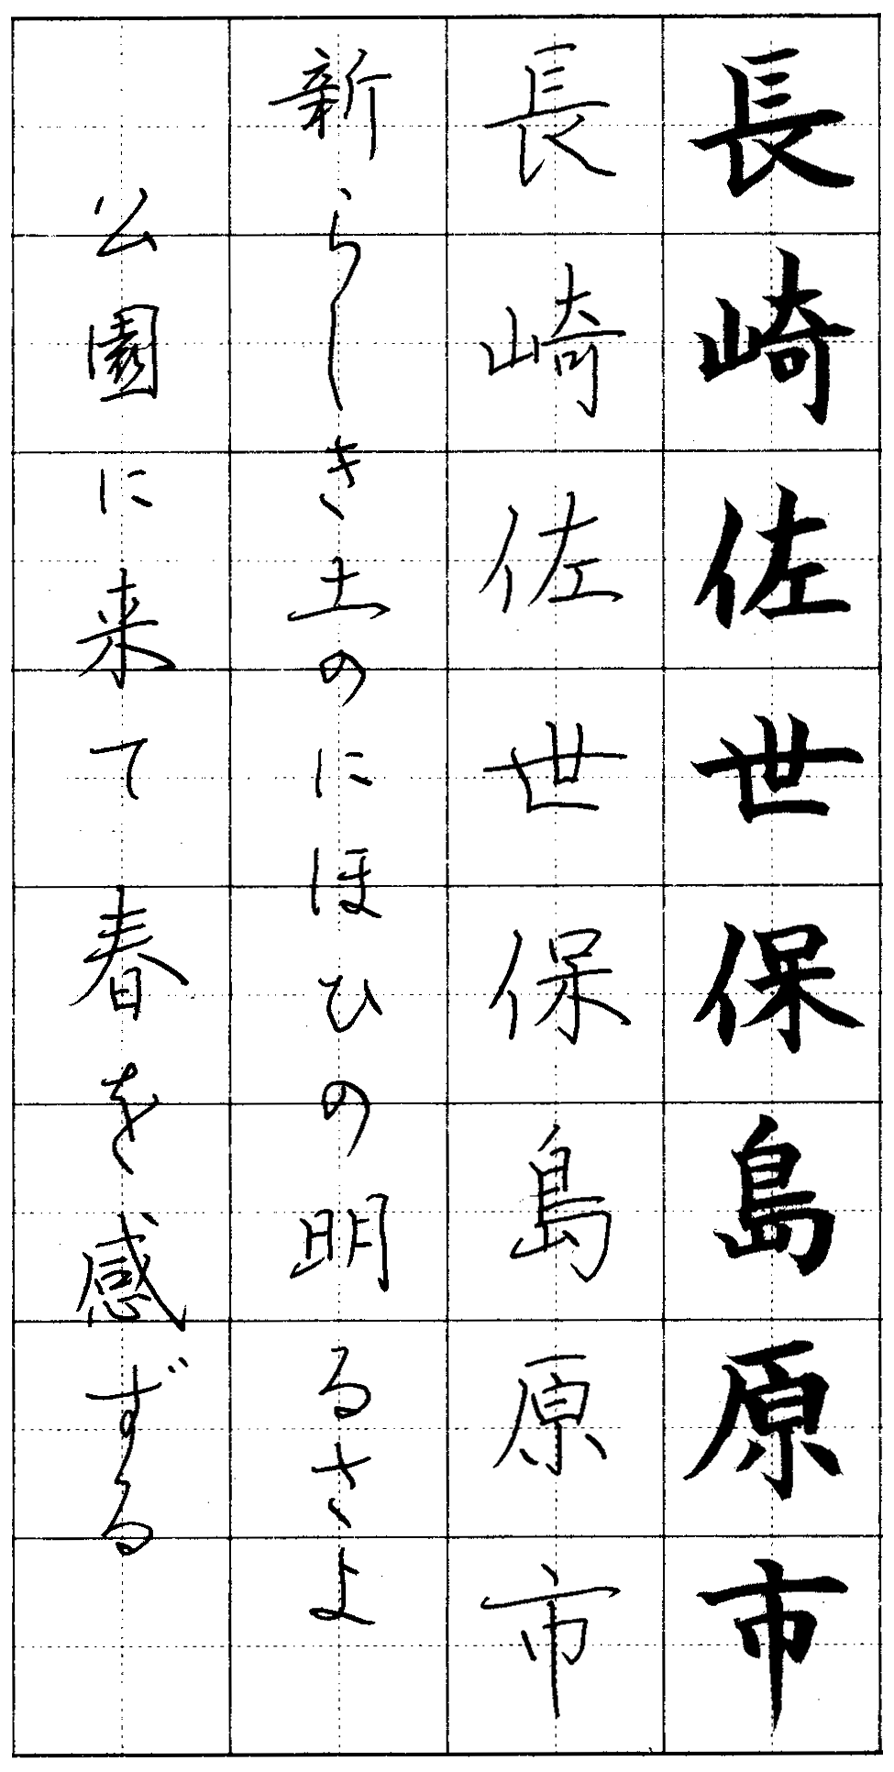 長崎佐世保島原市
長崎佐世保島原市
新らしき土のにほひの明るさよ
公園に来て春を感ずる